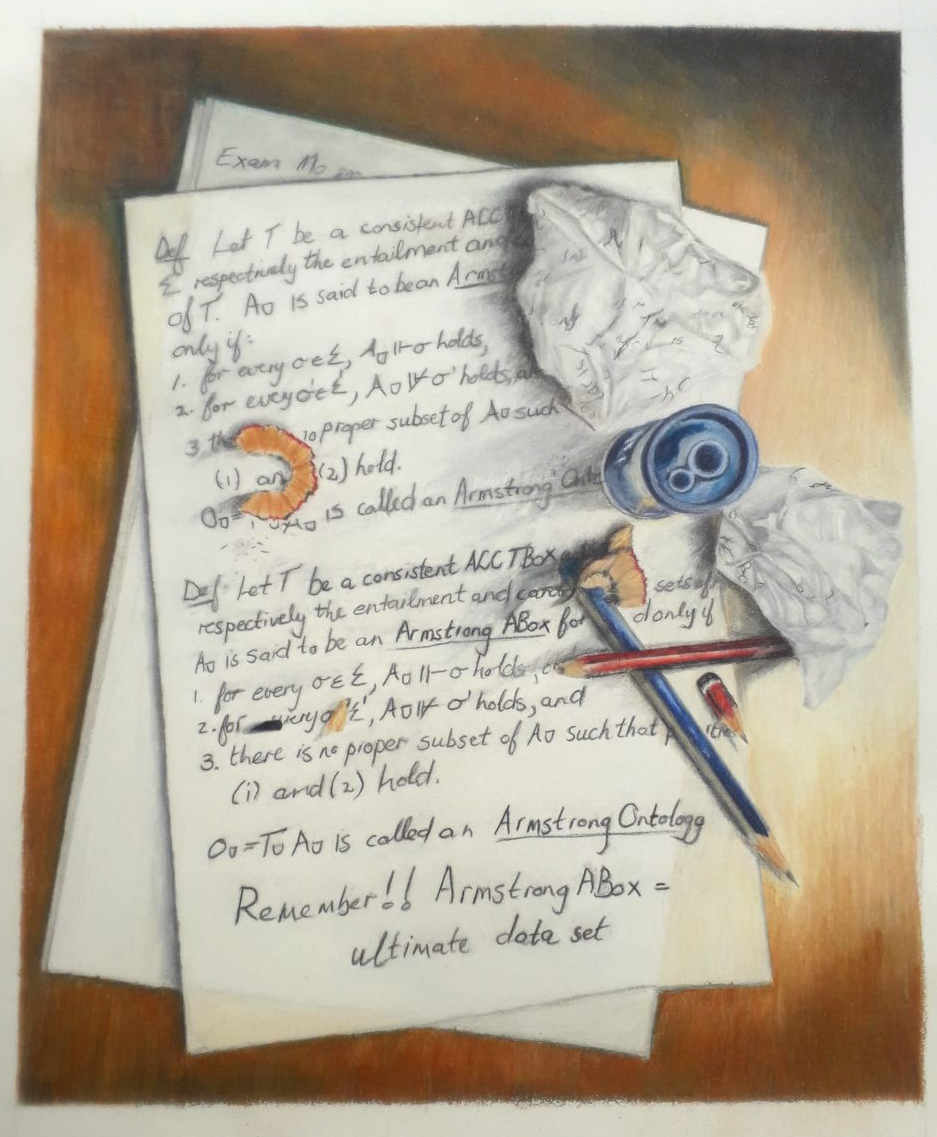 Exam
Def Let T be a consistent ALC
Σ respectively the entailment and
of T. A₀ is said to be an Armst
only if:
1. for every σ∈Σ, A₀⊩σ holds,
2. for every σ'∈Σ', A₀⊮σ' holds, a
3 the no proper subset of A₀ such
(1) an (2) hold.
O₀= A₀ is called an Armstrong Onto
Def Let T be a consistent ALC TBox
respectively the entailment and sets of
A₀ is said to be an Armstrong ABox for d only if
1. for every σ∈Σ, A₀⊩σ holds,
2. for very Σ', A₀⊮σ' holds, and
3. there is no proper subset of A₀ such that
(i) and (2) hold.
O₀=T∪A₀ is called an Armstrong Ontology
Remember!! Armstrong ABox =
ultimate data set